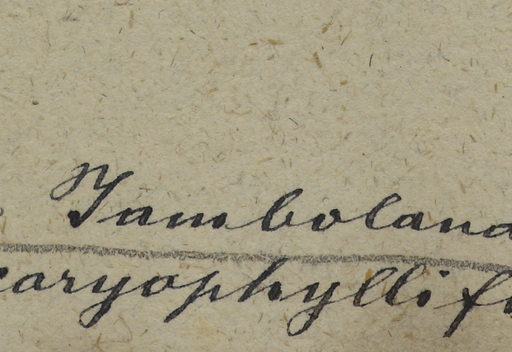 Jambolana
caryophyllif